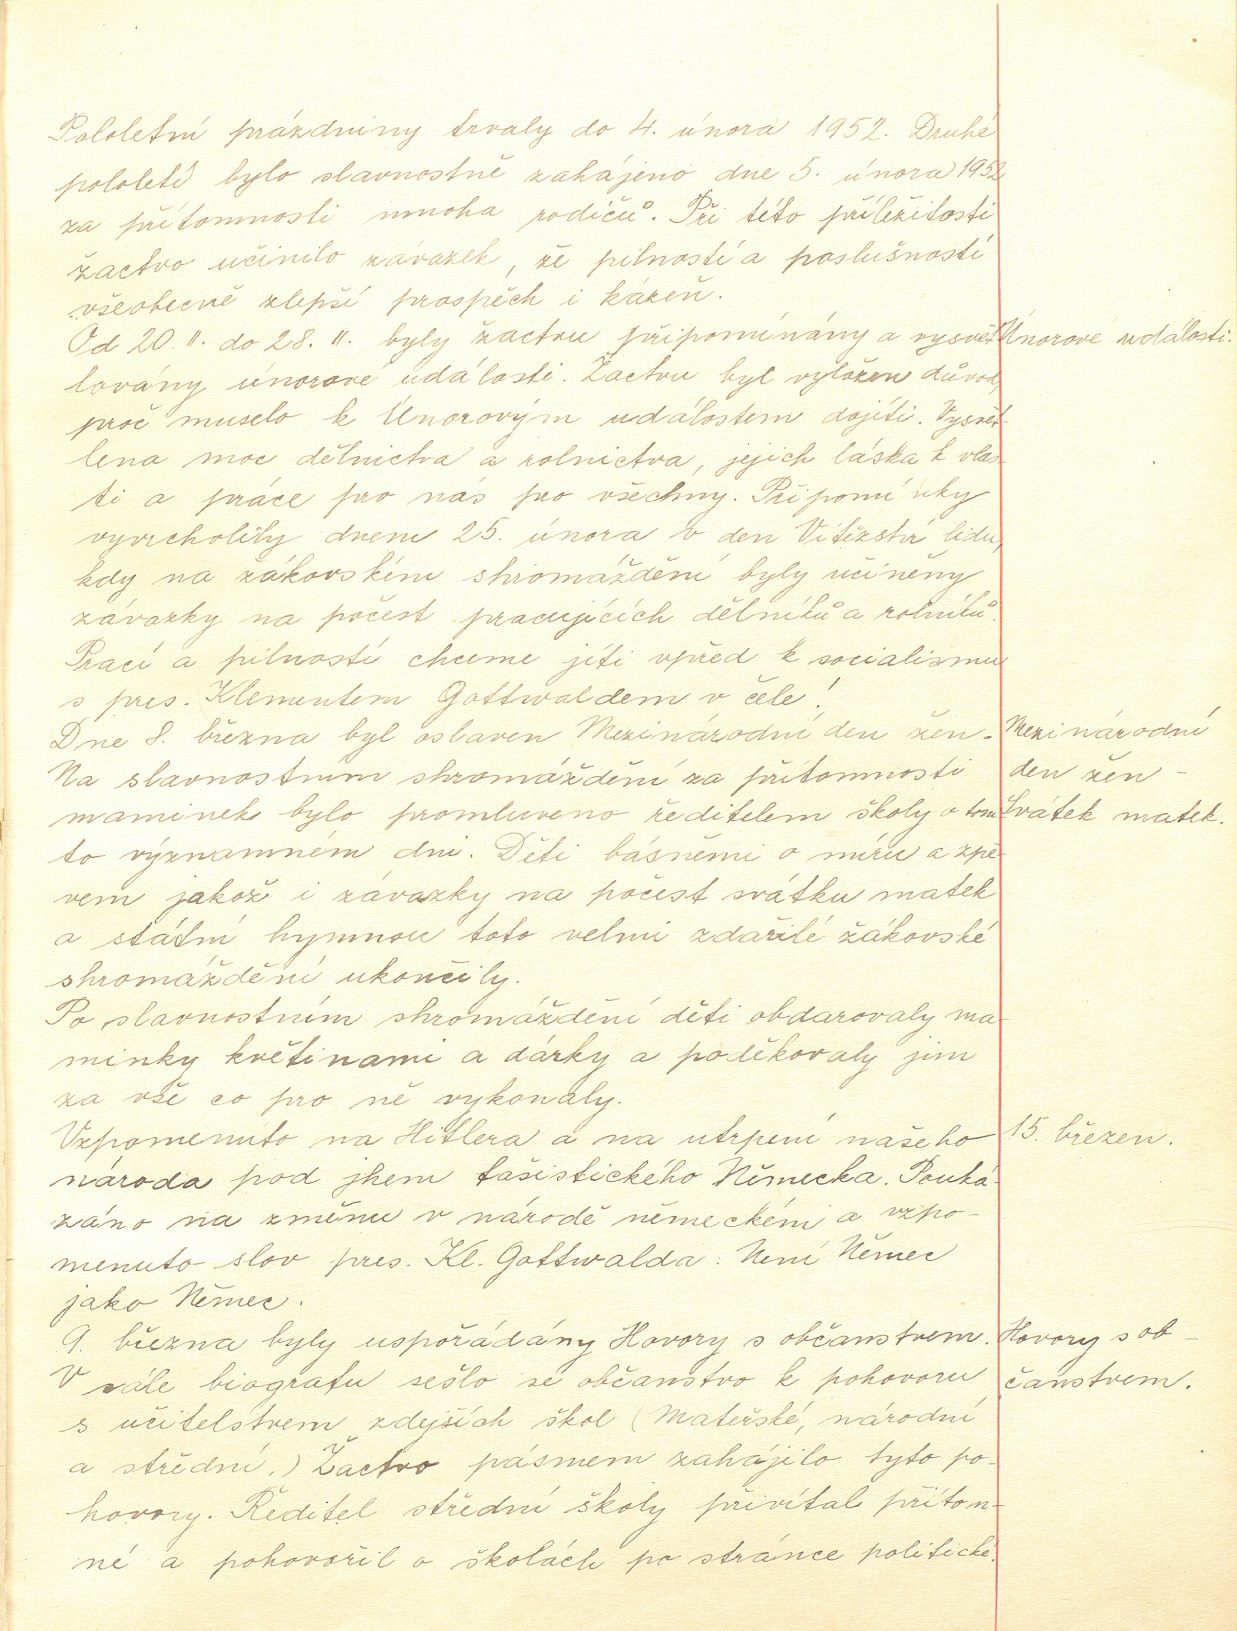 Pololetní prázdniny trvaly do 4. února 1952. Druhé
pololetí bylo slavnostně zahájeno dne 5. února 1952
za přítomnosti mnoha rodičů. Při této příležitosti
žactvo učinilo závazek, že pilností a poslušností
všeobecně zlepší prospěch i kázeň.
Od 20. II. do 28. II. byly žactvu připomínány a vysvět
Únorové události.
lovány únorové události. Žactvu byl vyložen důvod,
proč muselo k Únorovým událostem dojíti. Vysvět-
lena moc dělnictva a rolnictva, jejich láska k vlas-
ti a práce pro nás pro všechny. Připomínky
vyvrcholily dnem 25. února v den Vítězství lidu,
kdy na žákovském shromáždění byly učiněny
závazky na počest pracujících dělníků a rolníků.
Prací a pilností chceme jíti vpřed k socialismu
s pres. Klementem Gottwaldem v čele!
Dne 8. března byl oslaven Mezinárodní den žen.
Mezinárodní
Na slavnostním shromáždění za přítomnosti
den žen -
maminek bylo promluveno ředitelem školy o tom
Svátek matek.
to významném dni. Děti básněmi o míru a zpě-
vem jakož i závazky na počest svátku matek
a státní hymnou toto velmi zdařilé žákovské
shromáždění ukončily.
Po slavnostním shromáždění děti obdarovaly ma-
minky květinami a dárky a poděkovaly jim
za vše co pro ně vykonaly.
Vzpomenuto na Hitlera a na utrpení našeho
15. březen.
národa pod jhem fašistického Německa. Pouká-
záno na změnu v národě německém a vzpo-
menuto slov pres. Kl. Gottwalda: Není Němec
jako Němec.
9. března byly uspořádány Hovory s občanstvem.
Hovory s ob-
V sále biografu sešlo se občanstvo k pohovoru
čanstvem.
s učitelstvem zdejších škol (mateřské, národní
a střední.) Žactvo pásmem zahájilo tyto po-
hovory. Ředitel střední školy přivítal přítom-
né a pohovořil o školách po stránce politické.